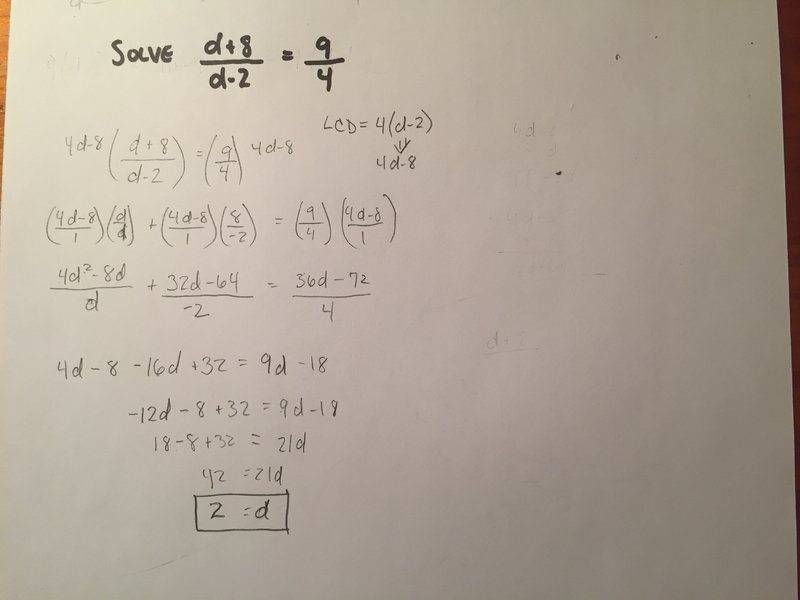 SOLVE (d+8)/(d-2) = 9/4
LCD = 4(d-2)
⇓
4d-8
4d-8 ((d+8)/(d-2)) = (9/4) 4d-8
((4d-8)/1)(d/d) + ((4d-8)/1)(8/-2) = (9/4)((4d-8)/1)
(4d²-8d)/d + (32d-64)/-2 = (36d-72)/4
4d-8 -16d+32 = 9d-18
-12d-8+32 = 9d-18
18-8+32 = 21d
42 = 21d
2 = d